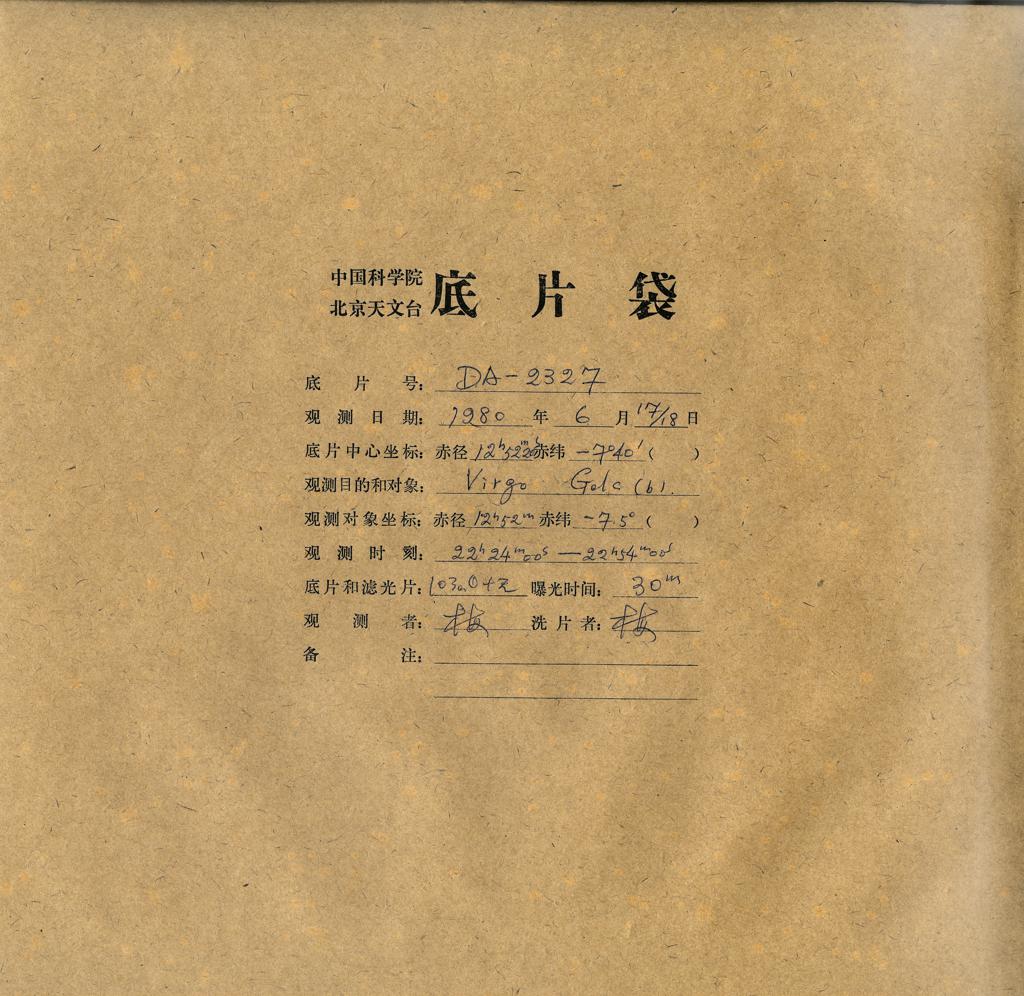 中国科学院
北京天文台
底片袋
底片号: DA-2327
观测日期: 1980年6月17/18日
底片中心坐标: 赤径 12ʰ52ᵐ 赤纬 -7°40′ ( )
观测目的和对象: Virgo (b).
观测对象坐标: 赤径 12ʰ52ᵐ 赤纬 -7.5° ( )
观测时刻: 22ʰ24ᵐ00ˢ — 22ʰ54ᵐ00ˢ
底片和滤光片: 103aO+无 曝光时间: 30ᵐ
观测者: 梅 洗片者: 梅
备注: